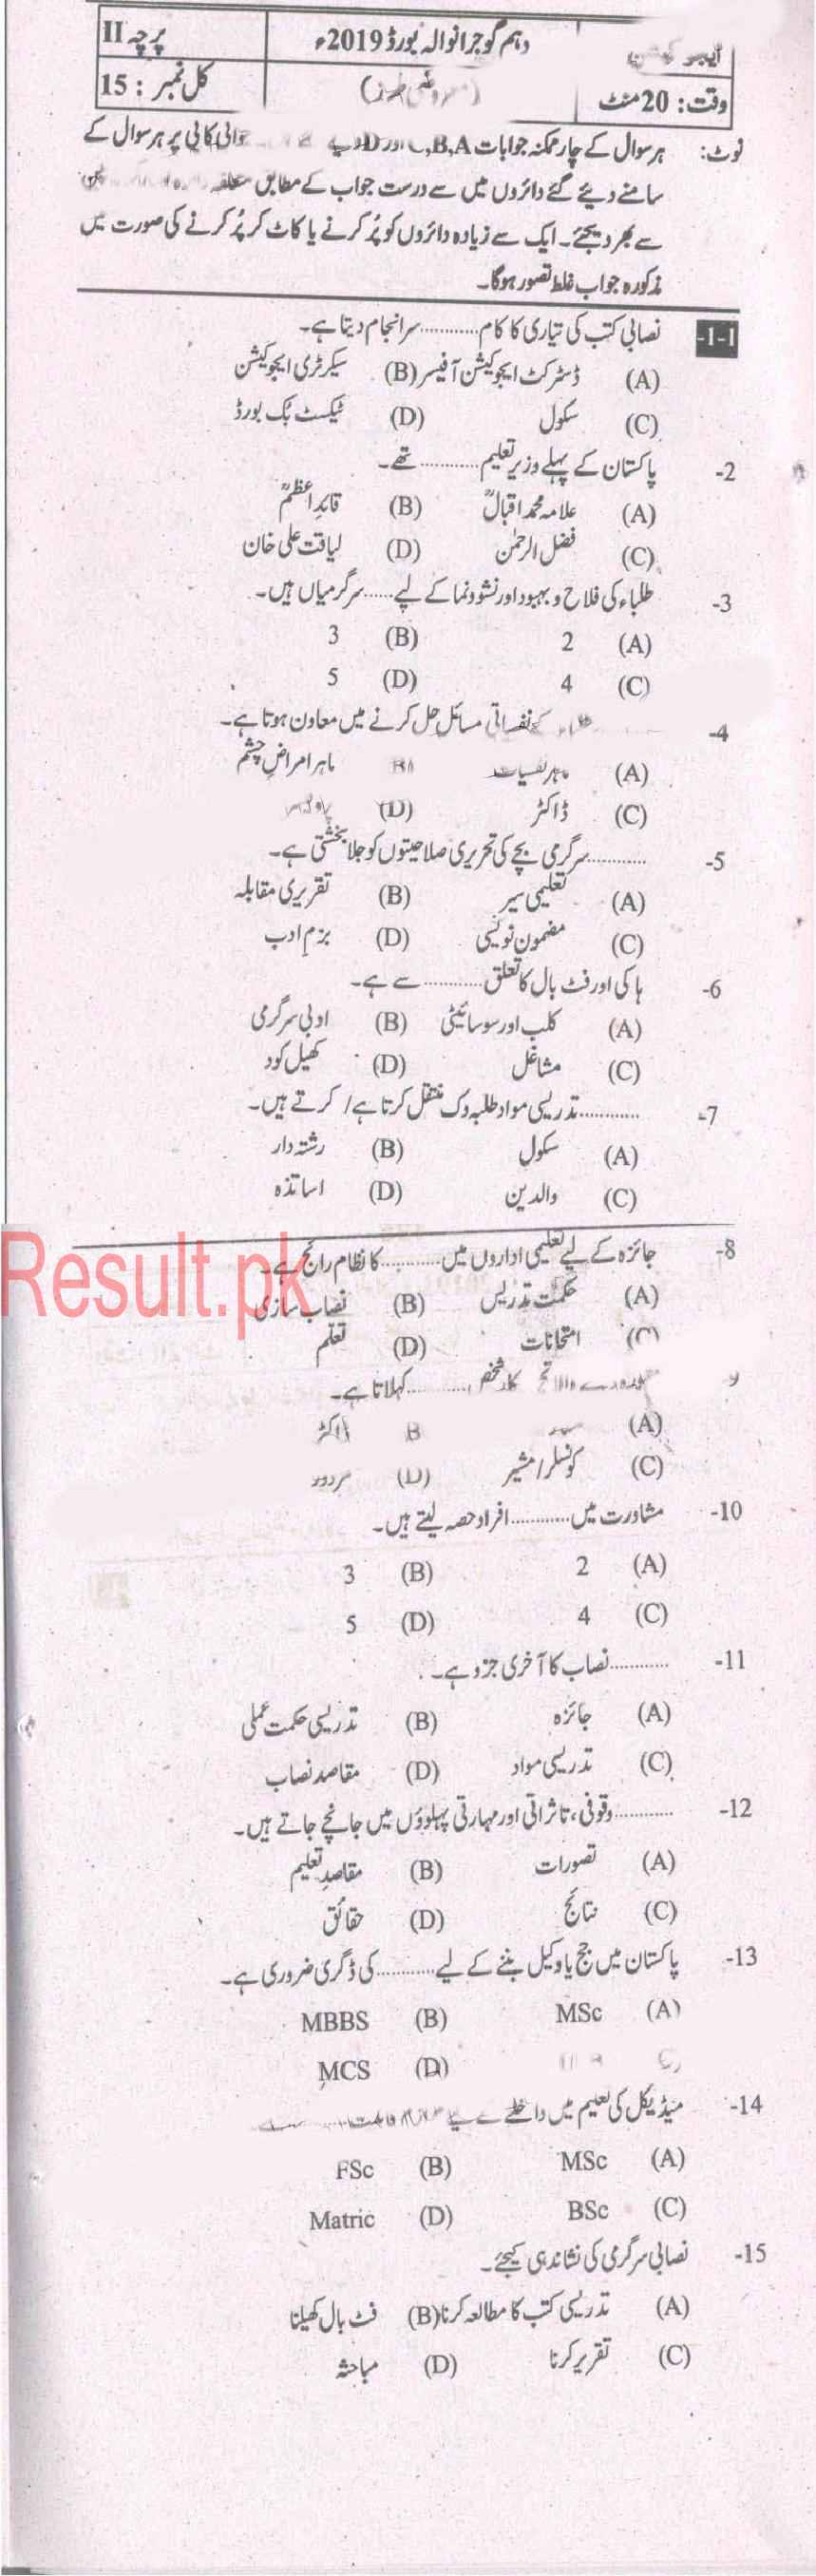 ایجوکیشن دہم گوجرانوالہ بورڈ 2019ء پرچہ II
وقت: 20 منٹ (معروضی طرز) کل نمبر: 15
نوٹ: ہر سوال کے چار ممکنہ جوابات A,B,C اور D کاپی پر ہر سوال کے
سامنے دیئے گئے دائروں میں سے درست جواب کے مطابق متعلقہ
سے بھر دیجئے۔ ایک سے زیادہ دائروں کو پُر کرنے یا کاٹ کر پُر کرنے کی صورت میں
مذکورہ جواب غلط تصور ہوگا۔
1-1- نصابی کتب کی تیاری کا کام ........... سرانجام دیتا ہے۔
(A) ڈسٹرکٹ ایجوکیشن آفیسر (B) سیکرٹری ایجوکیشن
(C) سکول (D) ٹیکسٹ بک بورڈ
2- پاکستان کے پہلے وزیر تعلیم ........... تھے۔
(A) علامہ محمد اقبالؒ (B) قائداعظمؒ
(C) فضل الرحمٰن (D) لیاقت علی خان
3- طلباء کی فلاح و بہبود اور نشوونما کے لیے ...... سرگرمیاں ہیں۔
(A) 2 (B) 3
(C) 4 (D) 5
4- طلباء کے نفسیاتی مسائل حل کرنے میں معاون ہوتا ہے۔
(A) ماہر نفسیات (B) ماہر امراض چشم
(C) ڈاکٹر (D)
5- ........... سرگرمی بچے کی تحریری صلاحیتوں کو جلا بخشتی ہے۔
(A) تعلیمی سیر (B) تقریری مقابلہ
(C) مضمون نویسی (D) بزم ادب
6- ہاکی اور فٹ بال کا تعلق ........... سے ہے۔
(A) کلب اور سوسائیٹی (B) ادبی سرگرمی
(C) مشاغل (D) کھیل کود
7- ........... تدریسی مواد طلبہ وک منتقل کرتا ہے/ کرتے ہیں۔
(A) سکول (B) رشتہ دار
(C) والدین (D) اساتذہ
8- جائزہ کے لیے تعلیمی اداروں میں ........... کا نظام رائج ہے۔
(A) حکمت تدریس (B) نصاب سازی
(C) امتحانات (D) تعلم
Result.pk
9 شخص ........... کہلاتا ہے۔
(A) B ڈاکٹر
(C) کونسلر/مشیر (D)
10- مشاورت میں ........... افراد حصہ لیتے ہیں۔
(A) 2 (B) 3
(C) 4 (D) 5
11- ........... نصاب کا آخری جزو ہے۔
(A) جائزہ (B) تدریسی حکمت عملی
(C) تدریسی مواد (D) مقاصد نصاب
12- ........... وقوفی، تاثراتی اور مہارتی پہلوؤں میں جانچے جاتے ہیں۔
(A) تصورات (B) مقاصدِ تعلیم
(C) نتائج (D) حقائق
13- پاکستان میں جج یا وکیل بننے کے لیے ........... کی ڈگری ضروری ہے۔
(A) MSc (B) MBBS
(C) (D) MCS
14- میڈیکل کی تعلیم میں داخلے
(A) MSc (B) FSc
(C) BSc (D) Matric
15- نصابی سرگرمی کی نشاندہی کیجئے۔
(A) تدریسی کتب کا مطالعہ کرنا (B) فٹ بال کھیلنا
(C) تقریر کرنا (D) مباحثہ